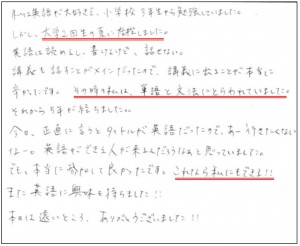 私は英語が大好きで、小学校3年生から勉強していました。
しかし、大学2回生の夏に挫折しました。
英語は読めるし、書けるけど、話せない。
講義も話すことがメインだったので、講義に出ることが本当に
辛かったです。その時の私は、単語と文法にとらわれていました。
それから5年が経ちました。
今日、正直に言うとタイトルが英語だったので、あー行きたくない
なー。英語ができる人が来るんだろうなぁと思っていました。
でも、本当に参加して良かったです。これなら私にもできる!!
また英語に興味を持ちました!!
本日は遠いところ、ありがとうございました!!